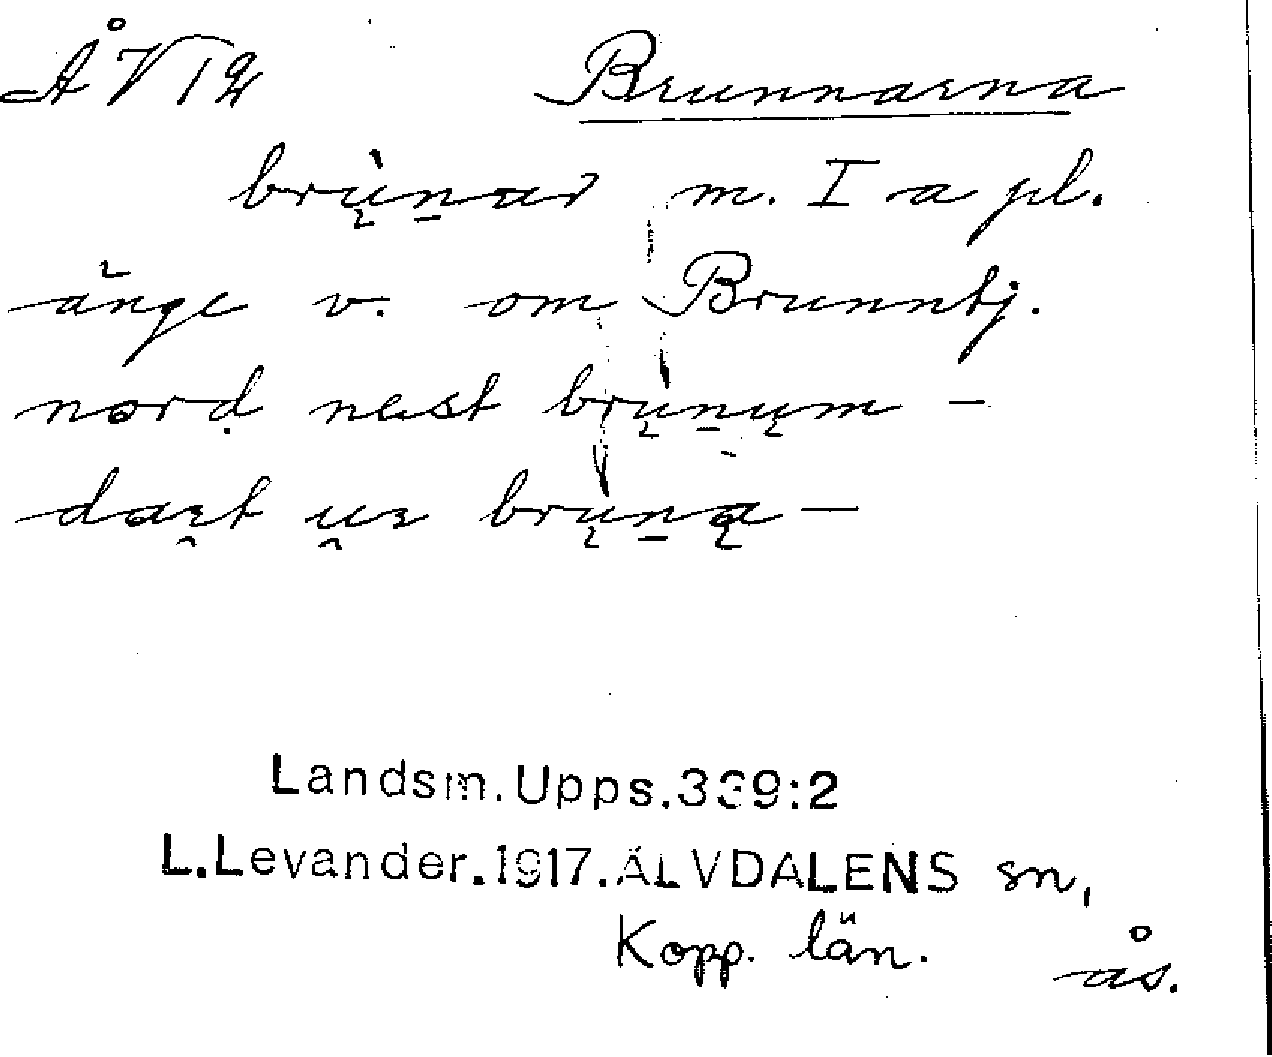 Brunnarna
brụ̀n̠ar m. I a pl.
änge v. om Brunntj.
nord nest brụn̠ụm –
daɛt ur brụn̠ą –
Landsm.Upps.339:2
L.Levander.1917.ÄLVDALENS sn,
Kopp. län.
ås.